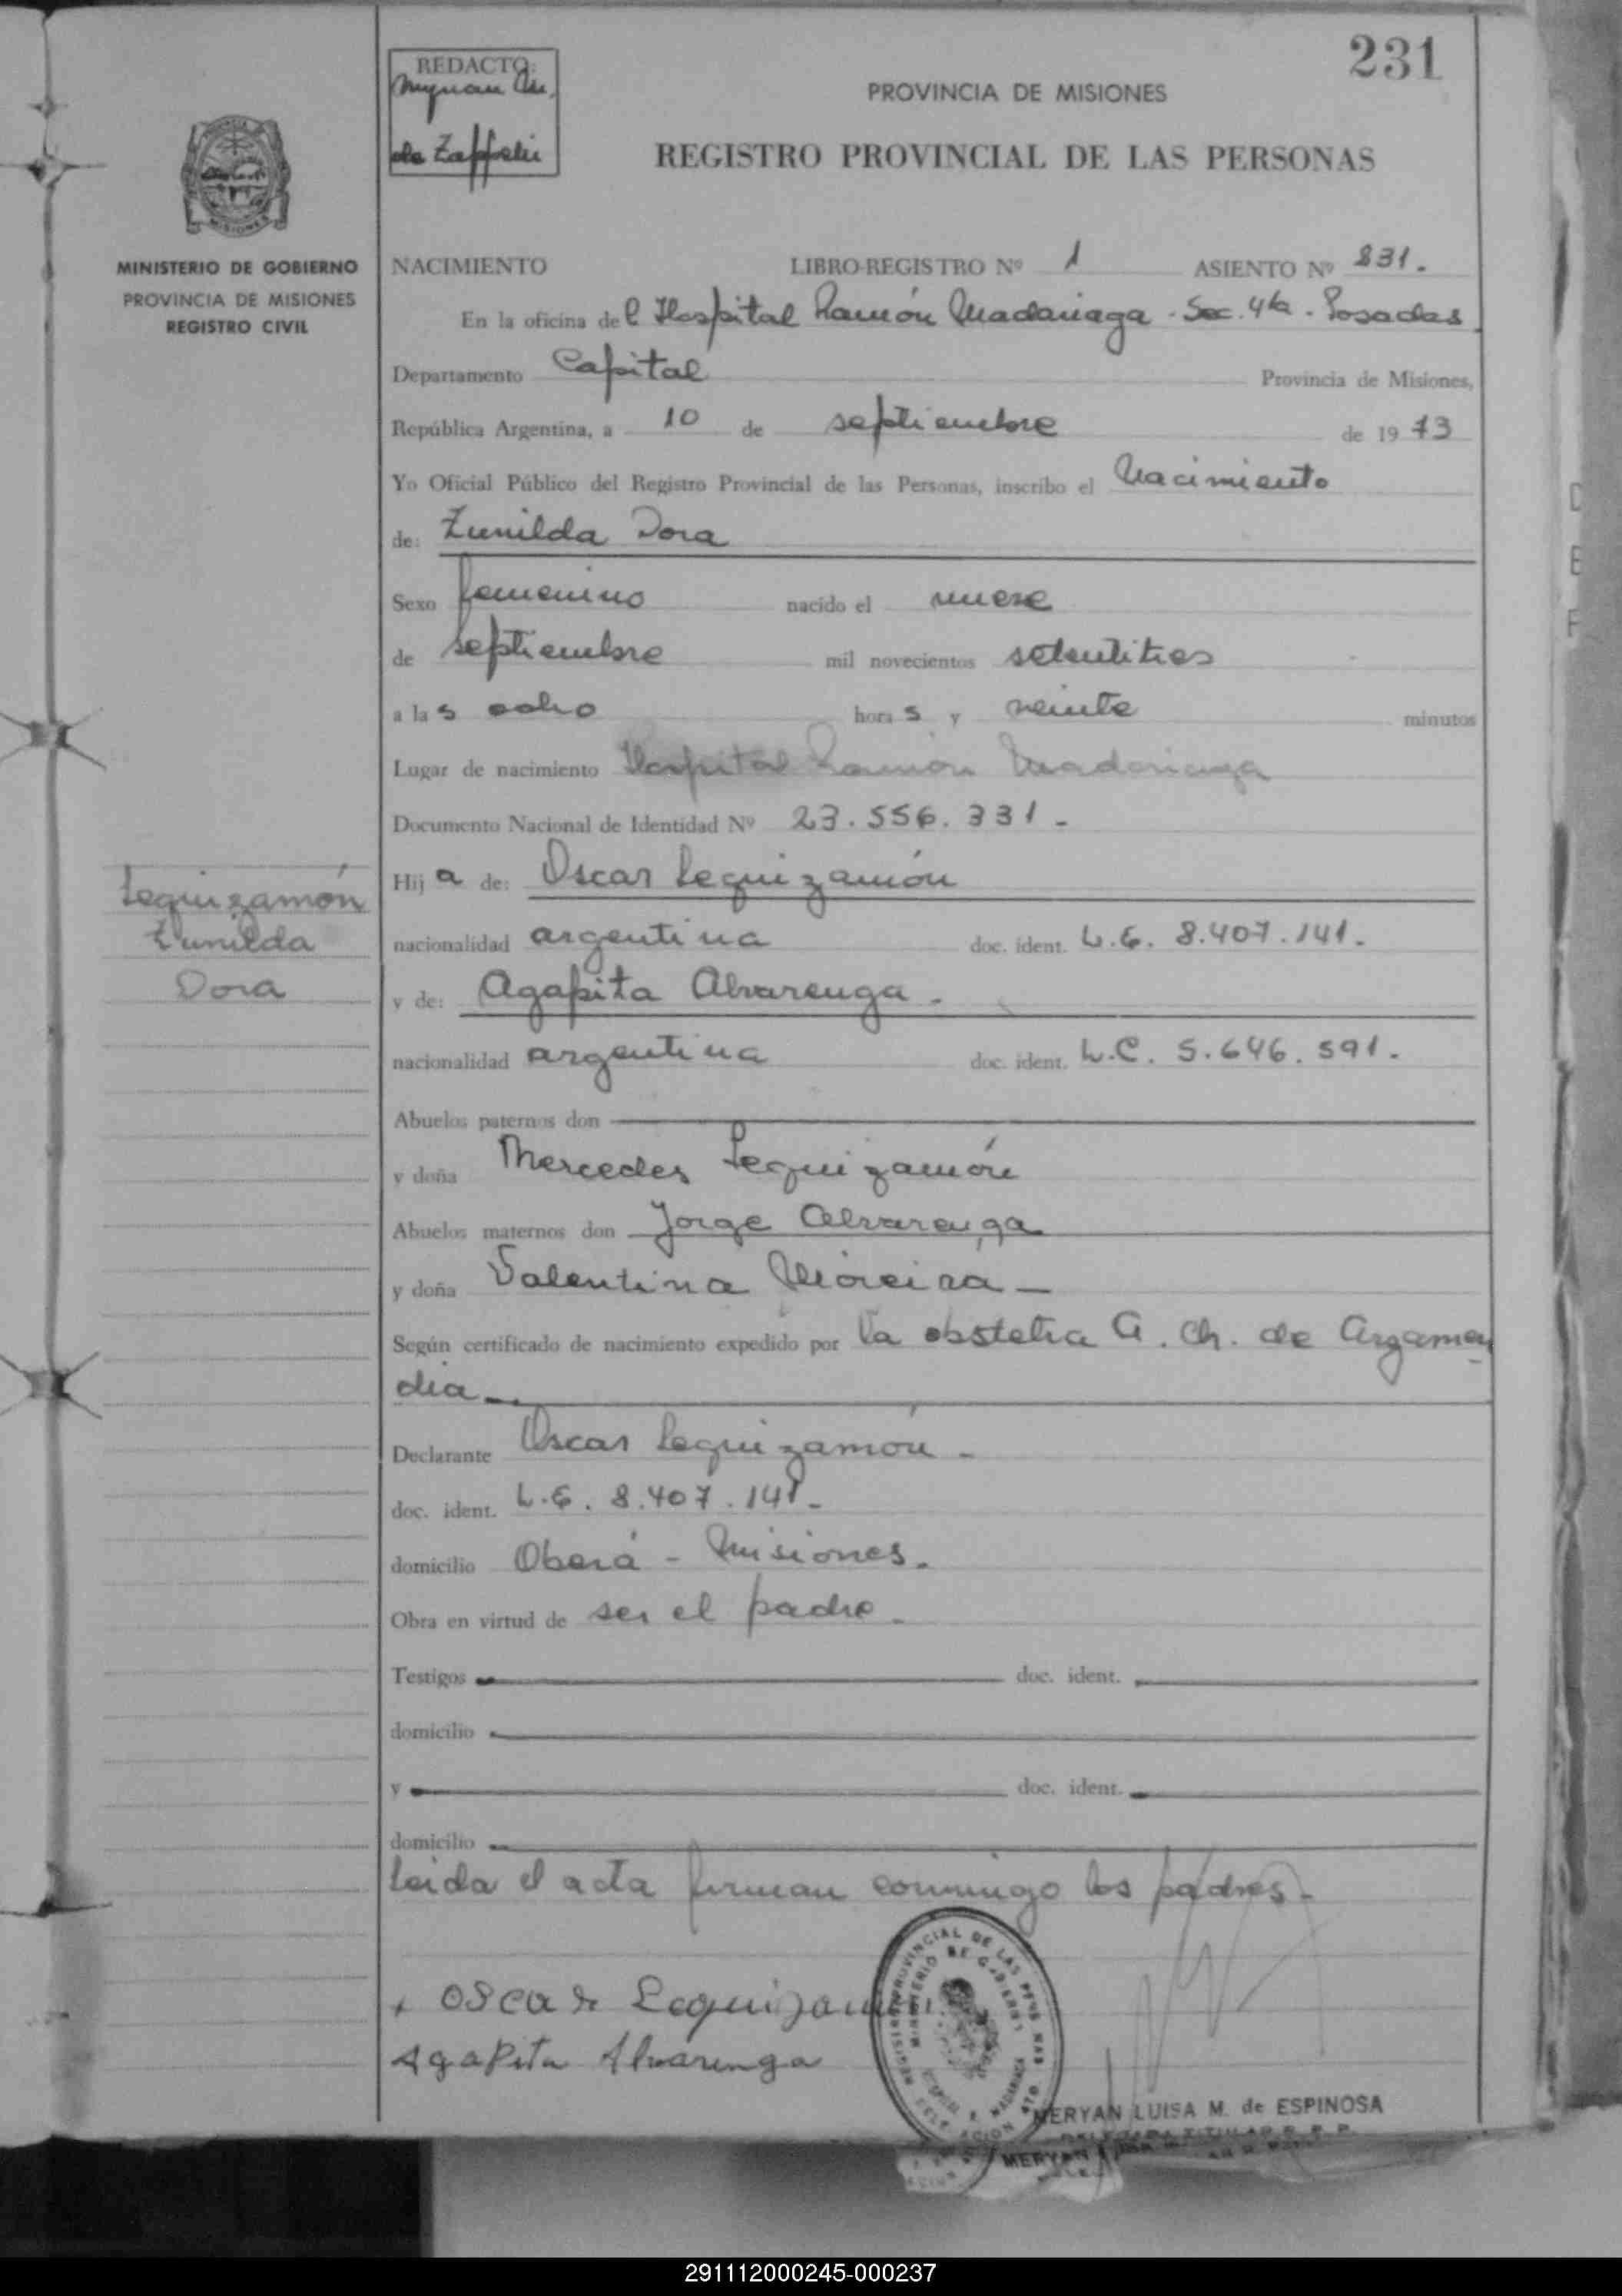 231
REDACTO:
Myrian M.
de Zappelli
PROVINCIA DE MISIONES
REGISTRO PROVINCIAL DE LAS PERSONAS
MISIONES
MINISTERIO DE GOBIERNO
PROVINCIA DE MISIONES
REGISTRO CIVIL
NACIMIENTO LIBRO-REGISTRO Nº 1 ASIENTO Nº 831.
En la oficina del Hospital Ramón Madariaga - Sec. 4ta - Posadas
Departamento Capital Provincia de Misiones,
República Argentina, a 10 de septiembre de 1973
Yo Oficial Público del Registro Provincial de las Personas, inscribo el Nacimiento
de: Zunilda Dora
Sexo femenino nacido el nueve
de septiembre mil novecientos setentitres
a las ocho horas y veinte minutos
Lugar de nacimiento Hospital Ramón Madariaga
Documento Nacional de Identidad Nº 23.556.331-
Hija de: Oscar Leguizamón
nacionalidad argentina doc. ident. L.E. 8.407.141.
y de: Agapita Alvarenga-
nacionalidad argentina doc. ident. L.C. 5.646.591.
Leguizamón
Zunilda
Dora
Abuelos paternos don
y doña Mercedes Leguizamón
Abuelos maternos don Jorge Alvarenga
y doña Valentina Moreira-
Según certificado de nacimiento expedido por la obstetra A. Ch. de Argamen
dia-
Declarante Oscar Leguizamón-
doc. ident. L.E. 8.407.141-
domicilio Oberá - Misiones.
Obra en virtud de ser el padre-
Testigos doc. ident.
domicilio
y doc. ident.
domicilio
Leida el acta firman conmigo los padres-
OSCAR Leguizamón
Agapita Alvarenga
REGISTRO PROVINCIAL DE LAS PERSONAS
MINISTERIO DE GOBIERNO
MERYAN LUISA M. de ESPINOSA
DELEGADA TITULAR R. P. P.
MERYAN
291112000245-000237